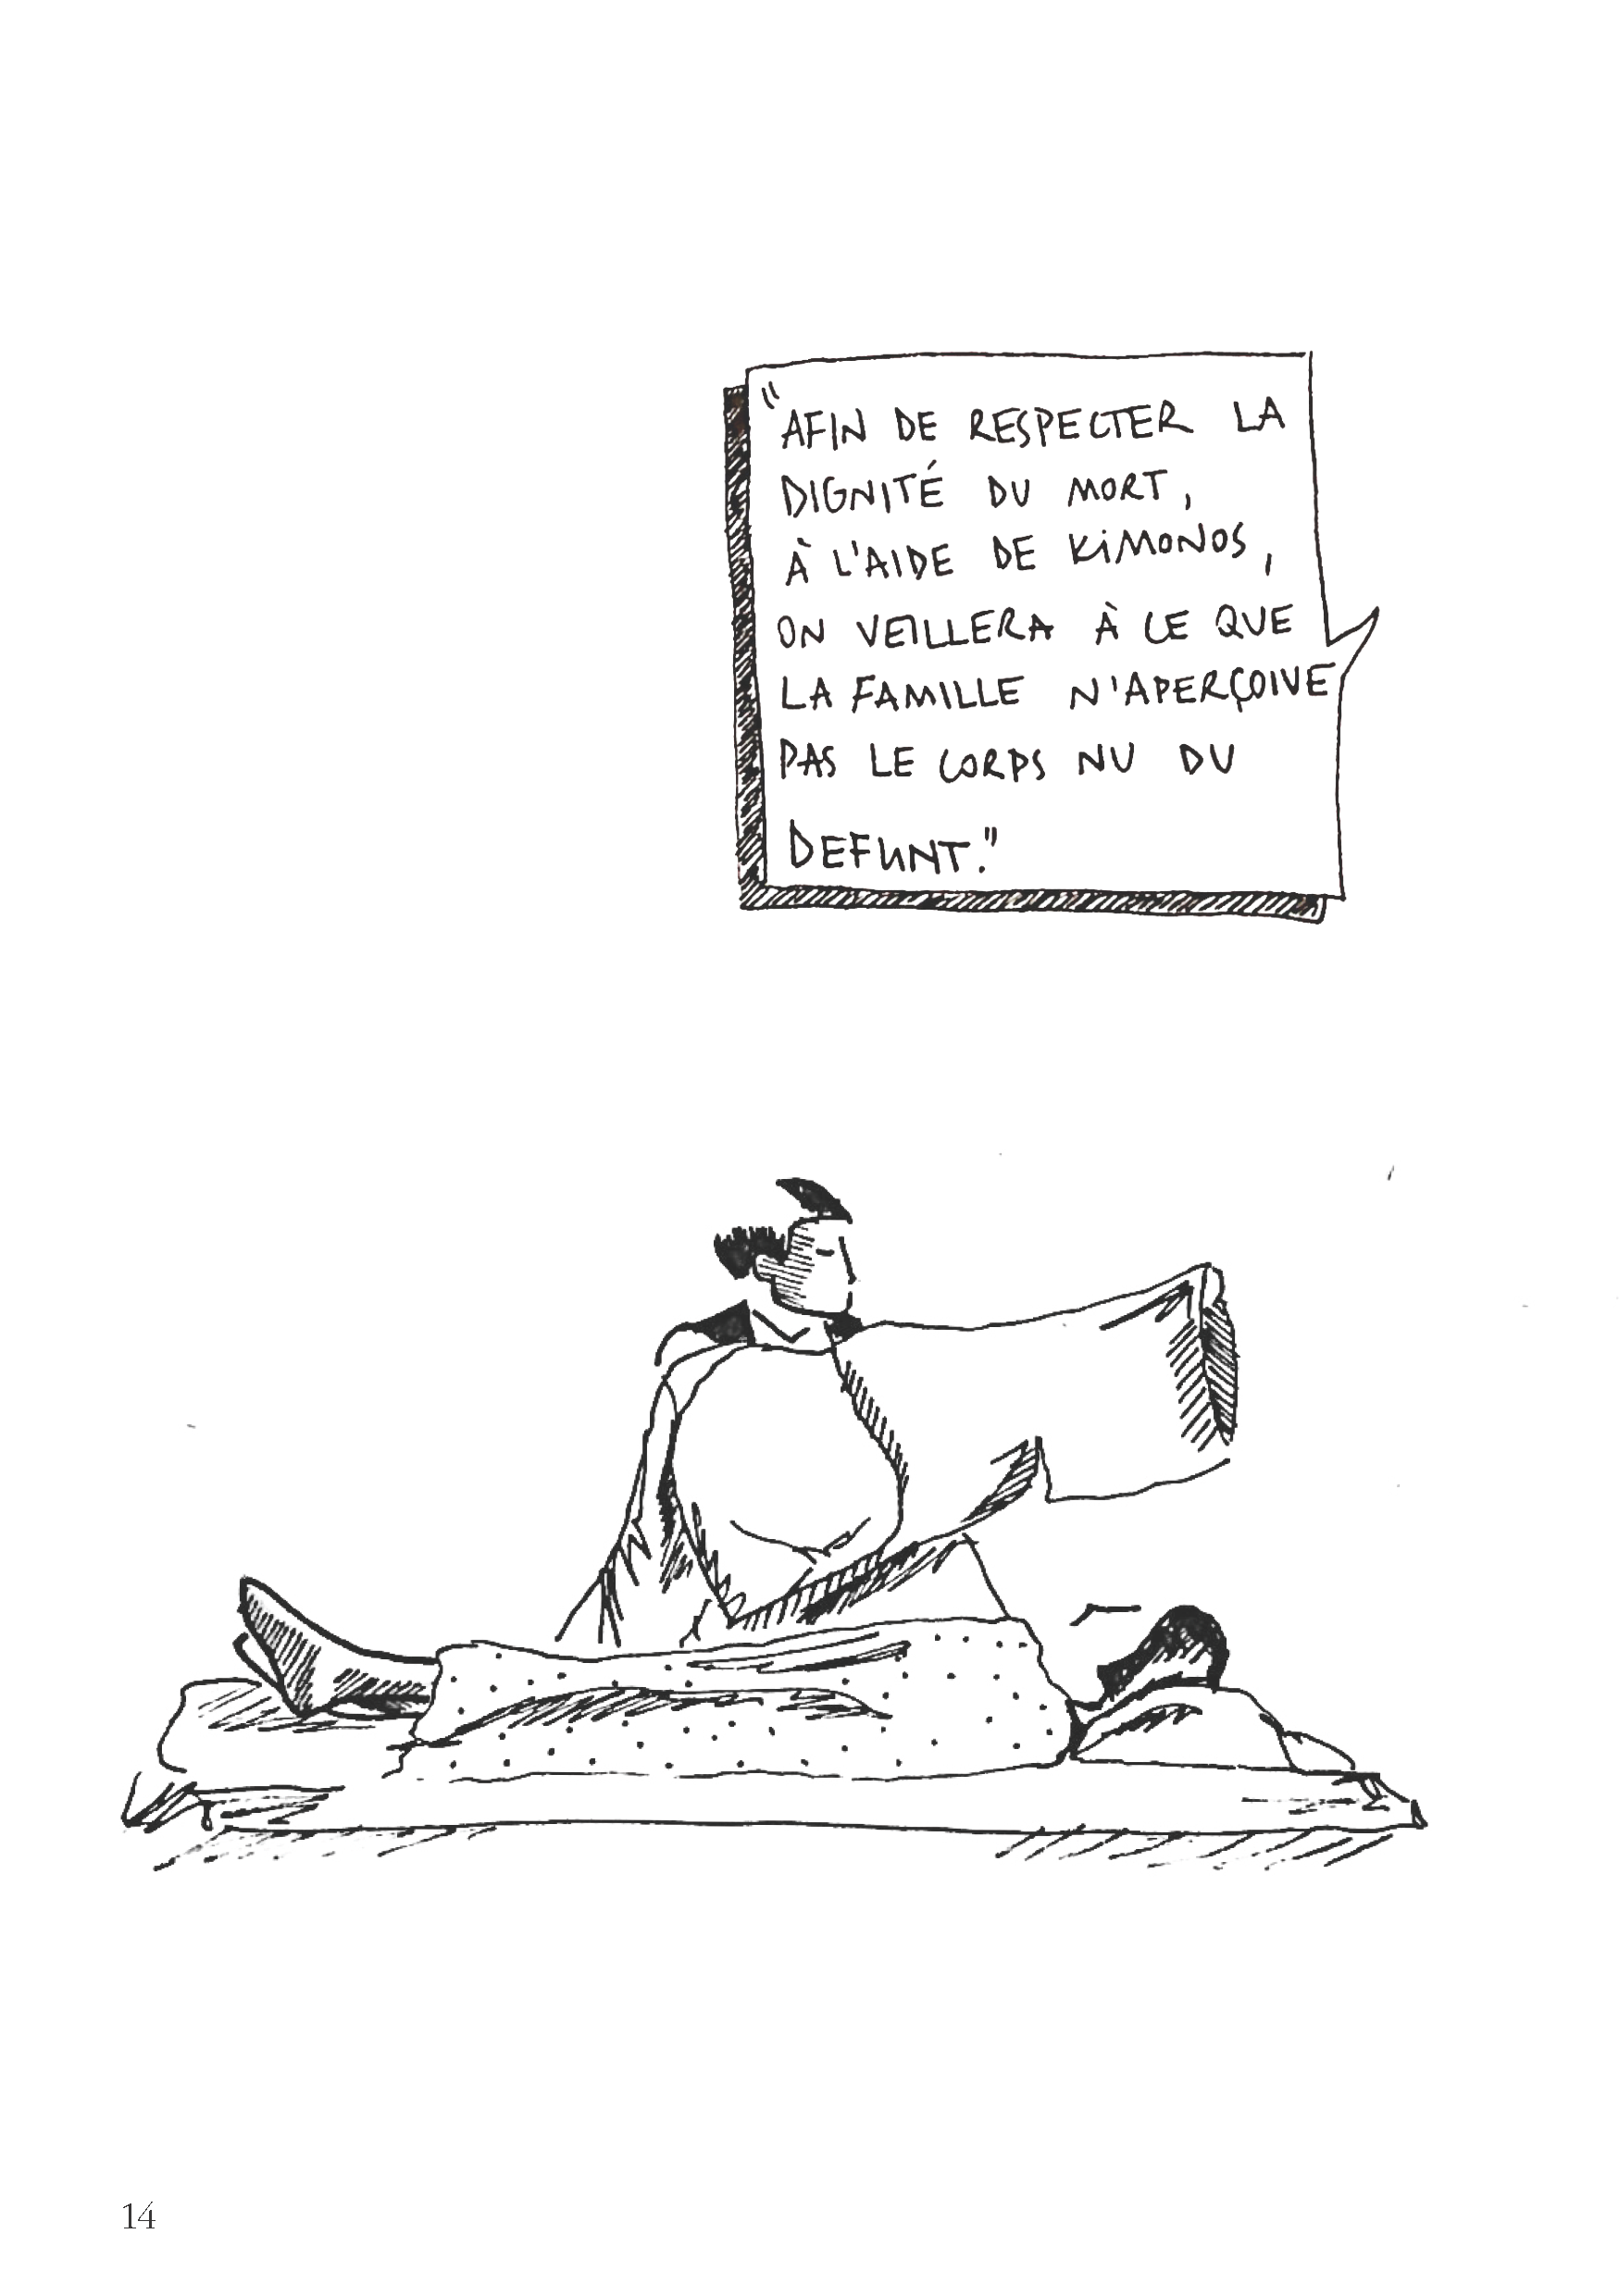 "AFIN DE RESPECTER LA
DIGNITÉ DU MORT,
À L'AIDE DE KIMONOS,
ON VEILLERA À CE QUE
LA FAMILLE N'APERÇOIVE
PAS LE CORPS NU DU
DEFUNT."
14